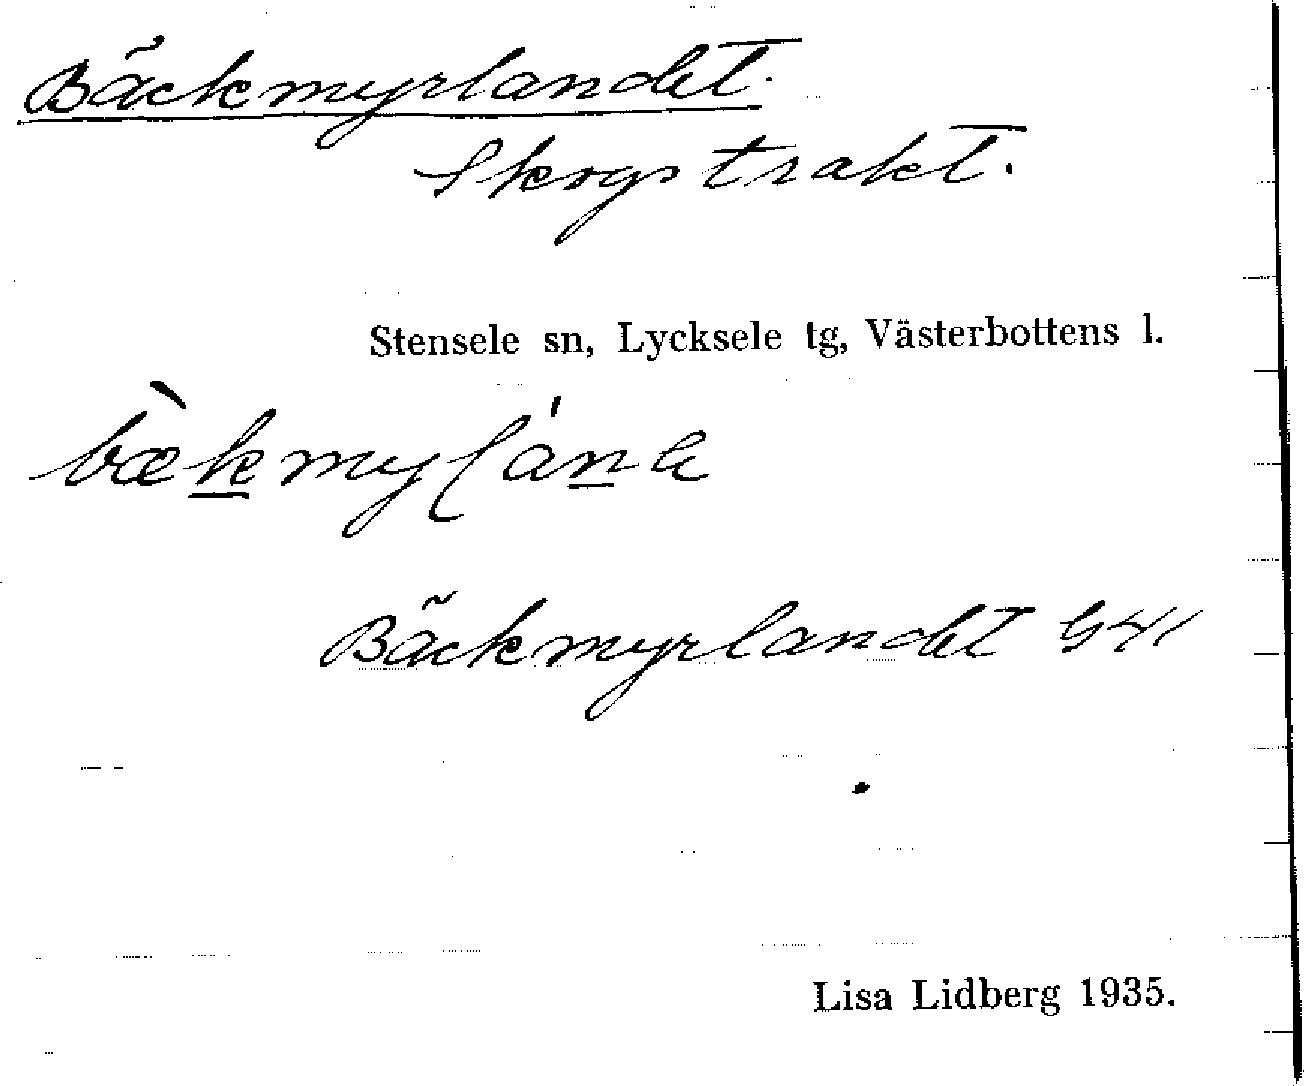 Bäckmyrlandet.
Skogstrakt.
Stensele sn, Lycksele tg, Västerbottens l.
Bäckmyrlandet G41
Lisa Lidberg 1935.